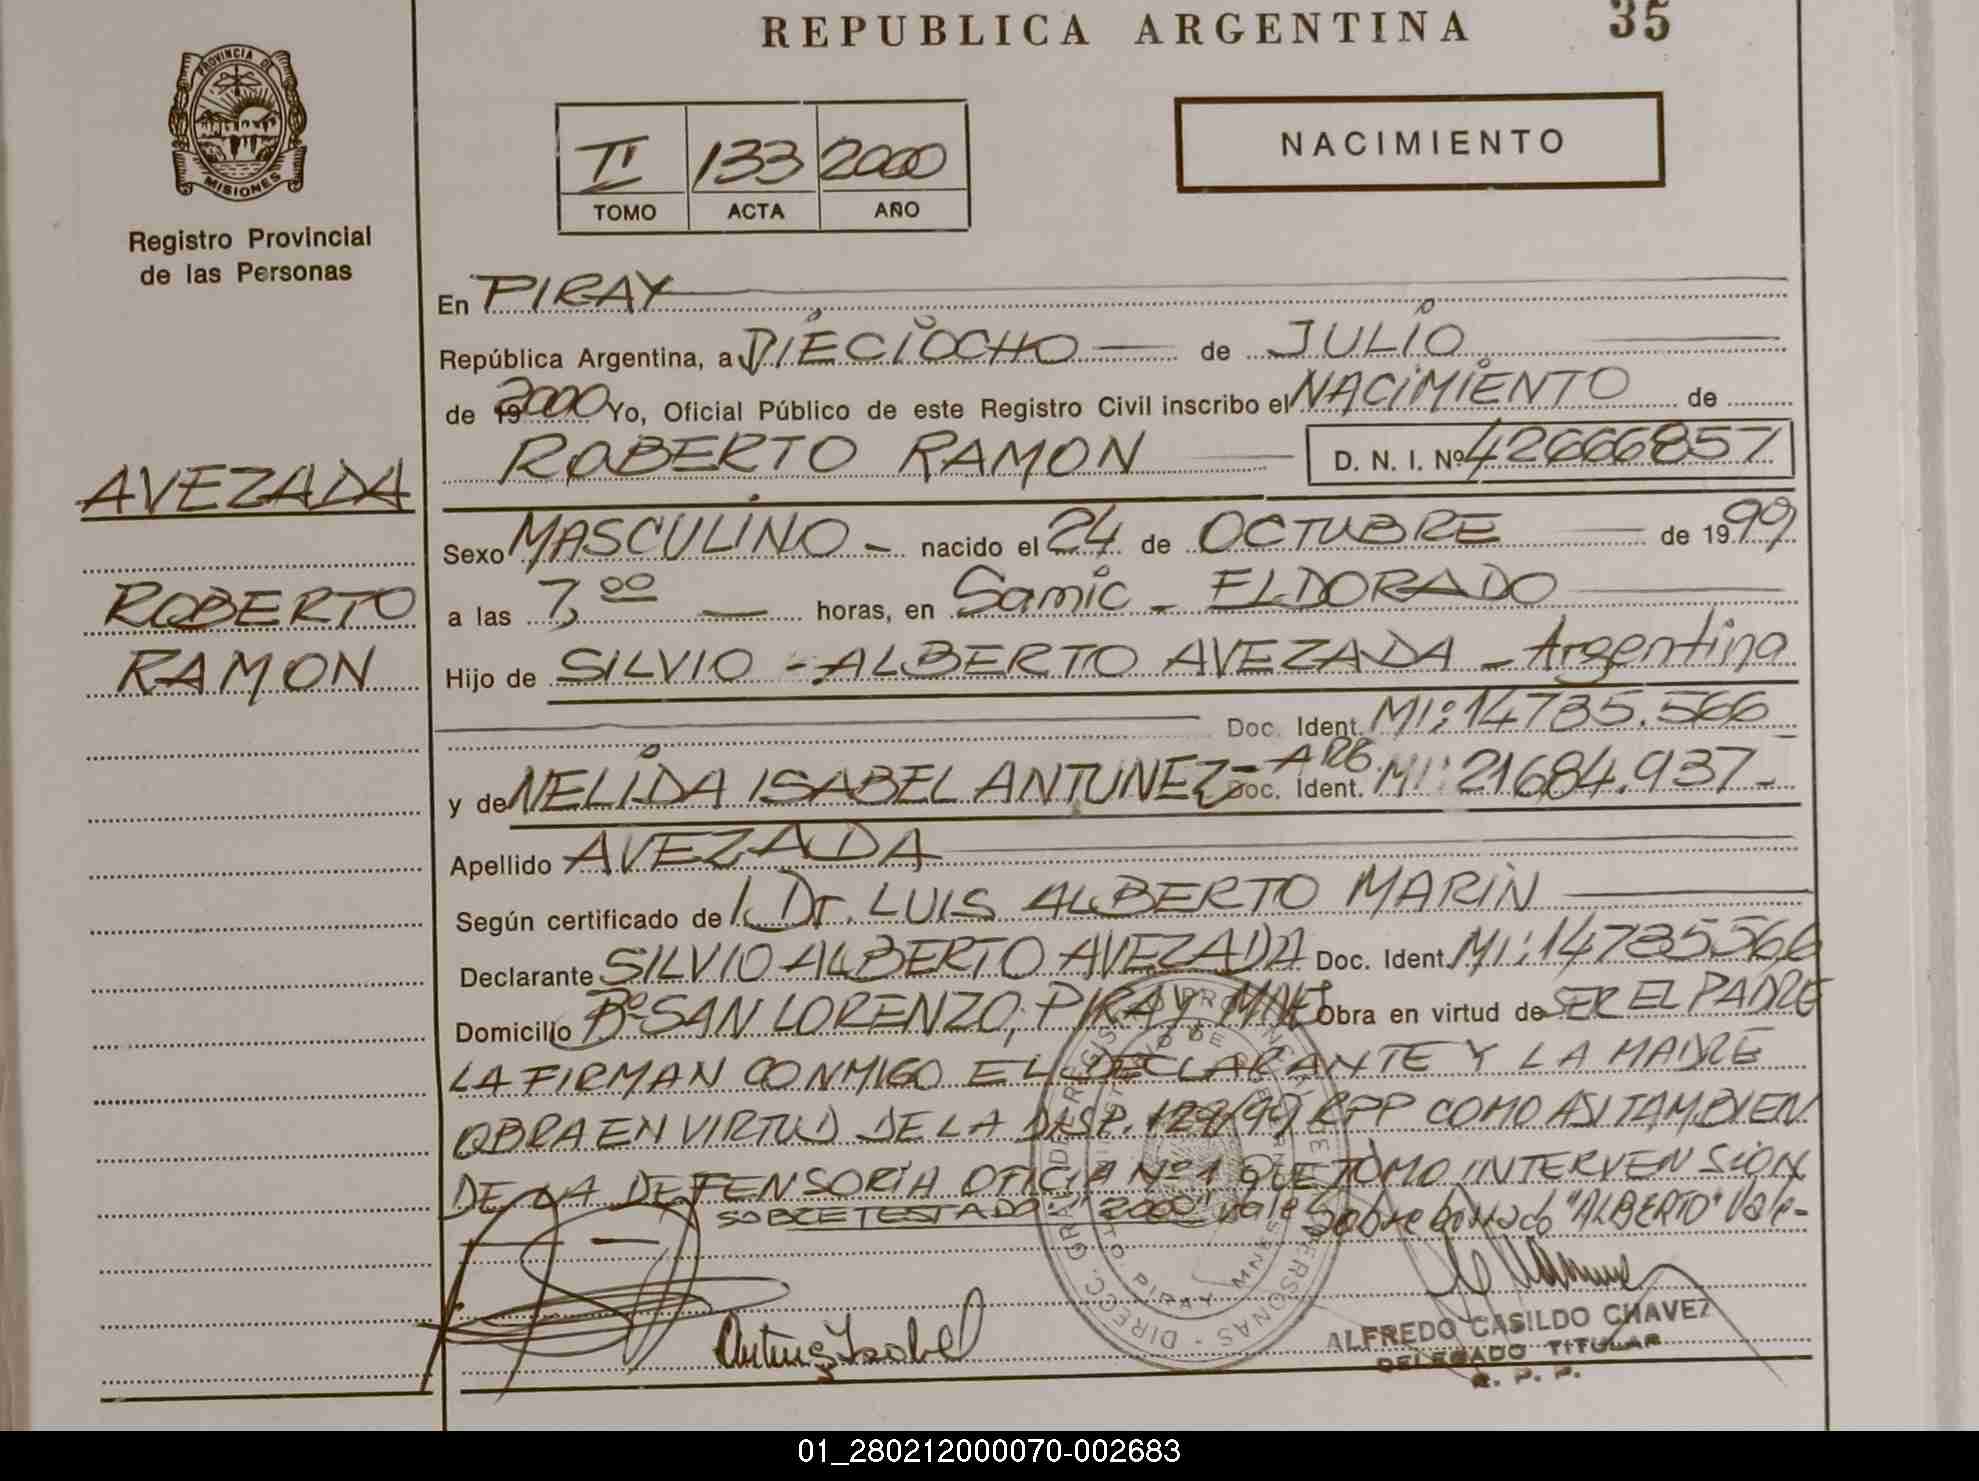 REPUBLICA ARGENTINA
35
PROVINCIA DE
MISIONES
Registro Provincial
de las Personas
II 133 2000
TOMO ACTA AÑO
NACIMIENTO
AVEZADA
ROBERTO
RAMON
En PIRAY
República Argentina, a DIECIOCHO de JULIO
de 19 2000 Yo, Oficial Público de este Registro Civil inscribo el NACIMIENTO de
ROBERTO RAMON D. N. I. Nº 42666857
Sexo MASCULINO - nacido el 24 de OCTUBRE de 1999
a las 7,00 horas, en Samic - ELDORADO
Hijo de SILVIO - ALBERTO AVEZADA - Argentina
Doc. Ident. MI: 14785.566
y de NELIDA ISABEL ANTUNEZ - ARG. Doc. Ident. MI: 21684.937-
Apellido AVEZADA
Según certificado de Dr. LUIS ALBERTO MARIN
Declarante SILVIO ALBERTO AVEZADA Doc. Ident. MI: 14785566
Domicilio Bº SAN LORENZO, PIRAY MNES Obra en virtud de SER EL PADRE
LA FIRMAN CONMIGO EL DECLARANTE Y LA MADRE
OBRA EN VIRTUD DE LA DISP. /99 RPP COMO ASI TAMBIEN
DE LA DEFENSORIA OFICIA Nº 1 QUE TOMO INTERVENSION
SOBRETESTADO: "2000" Vale Sobre borrado "ALBERTO" Vale-
Isabel
ALFREDO CASILDO CHAVEZ
DELEGADO TITULAR
R. P. P.
01_280212000070-002683